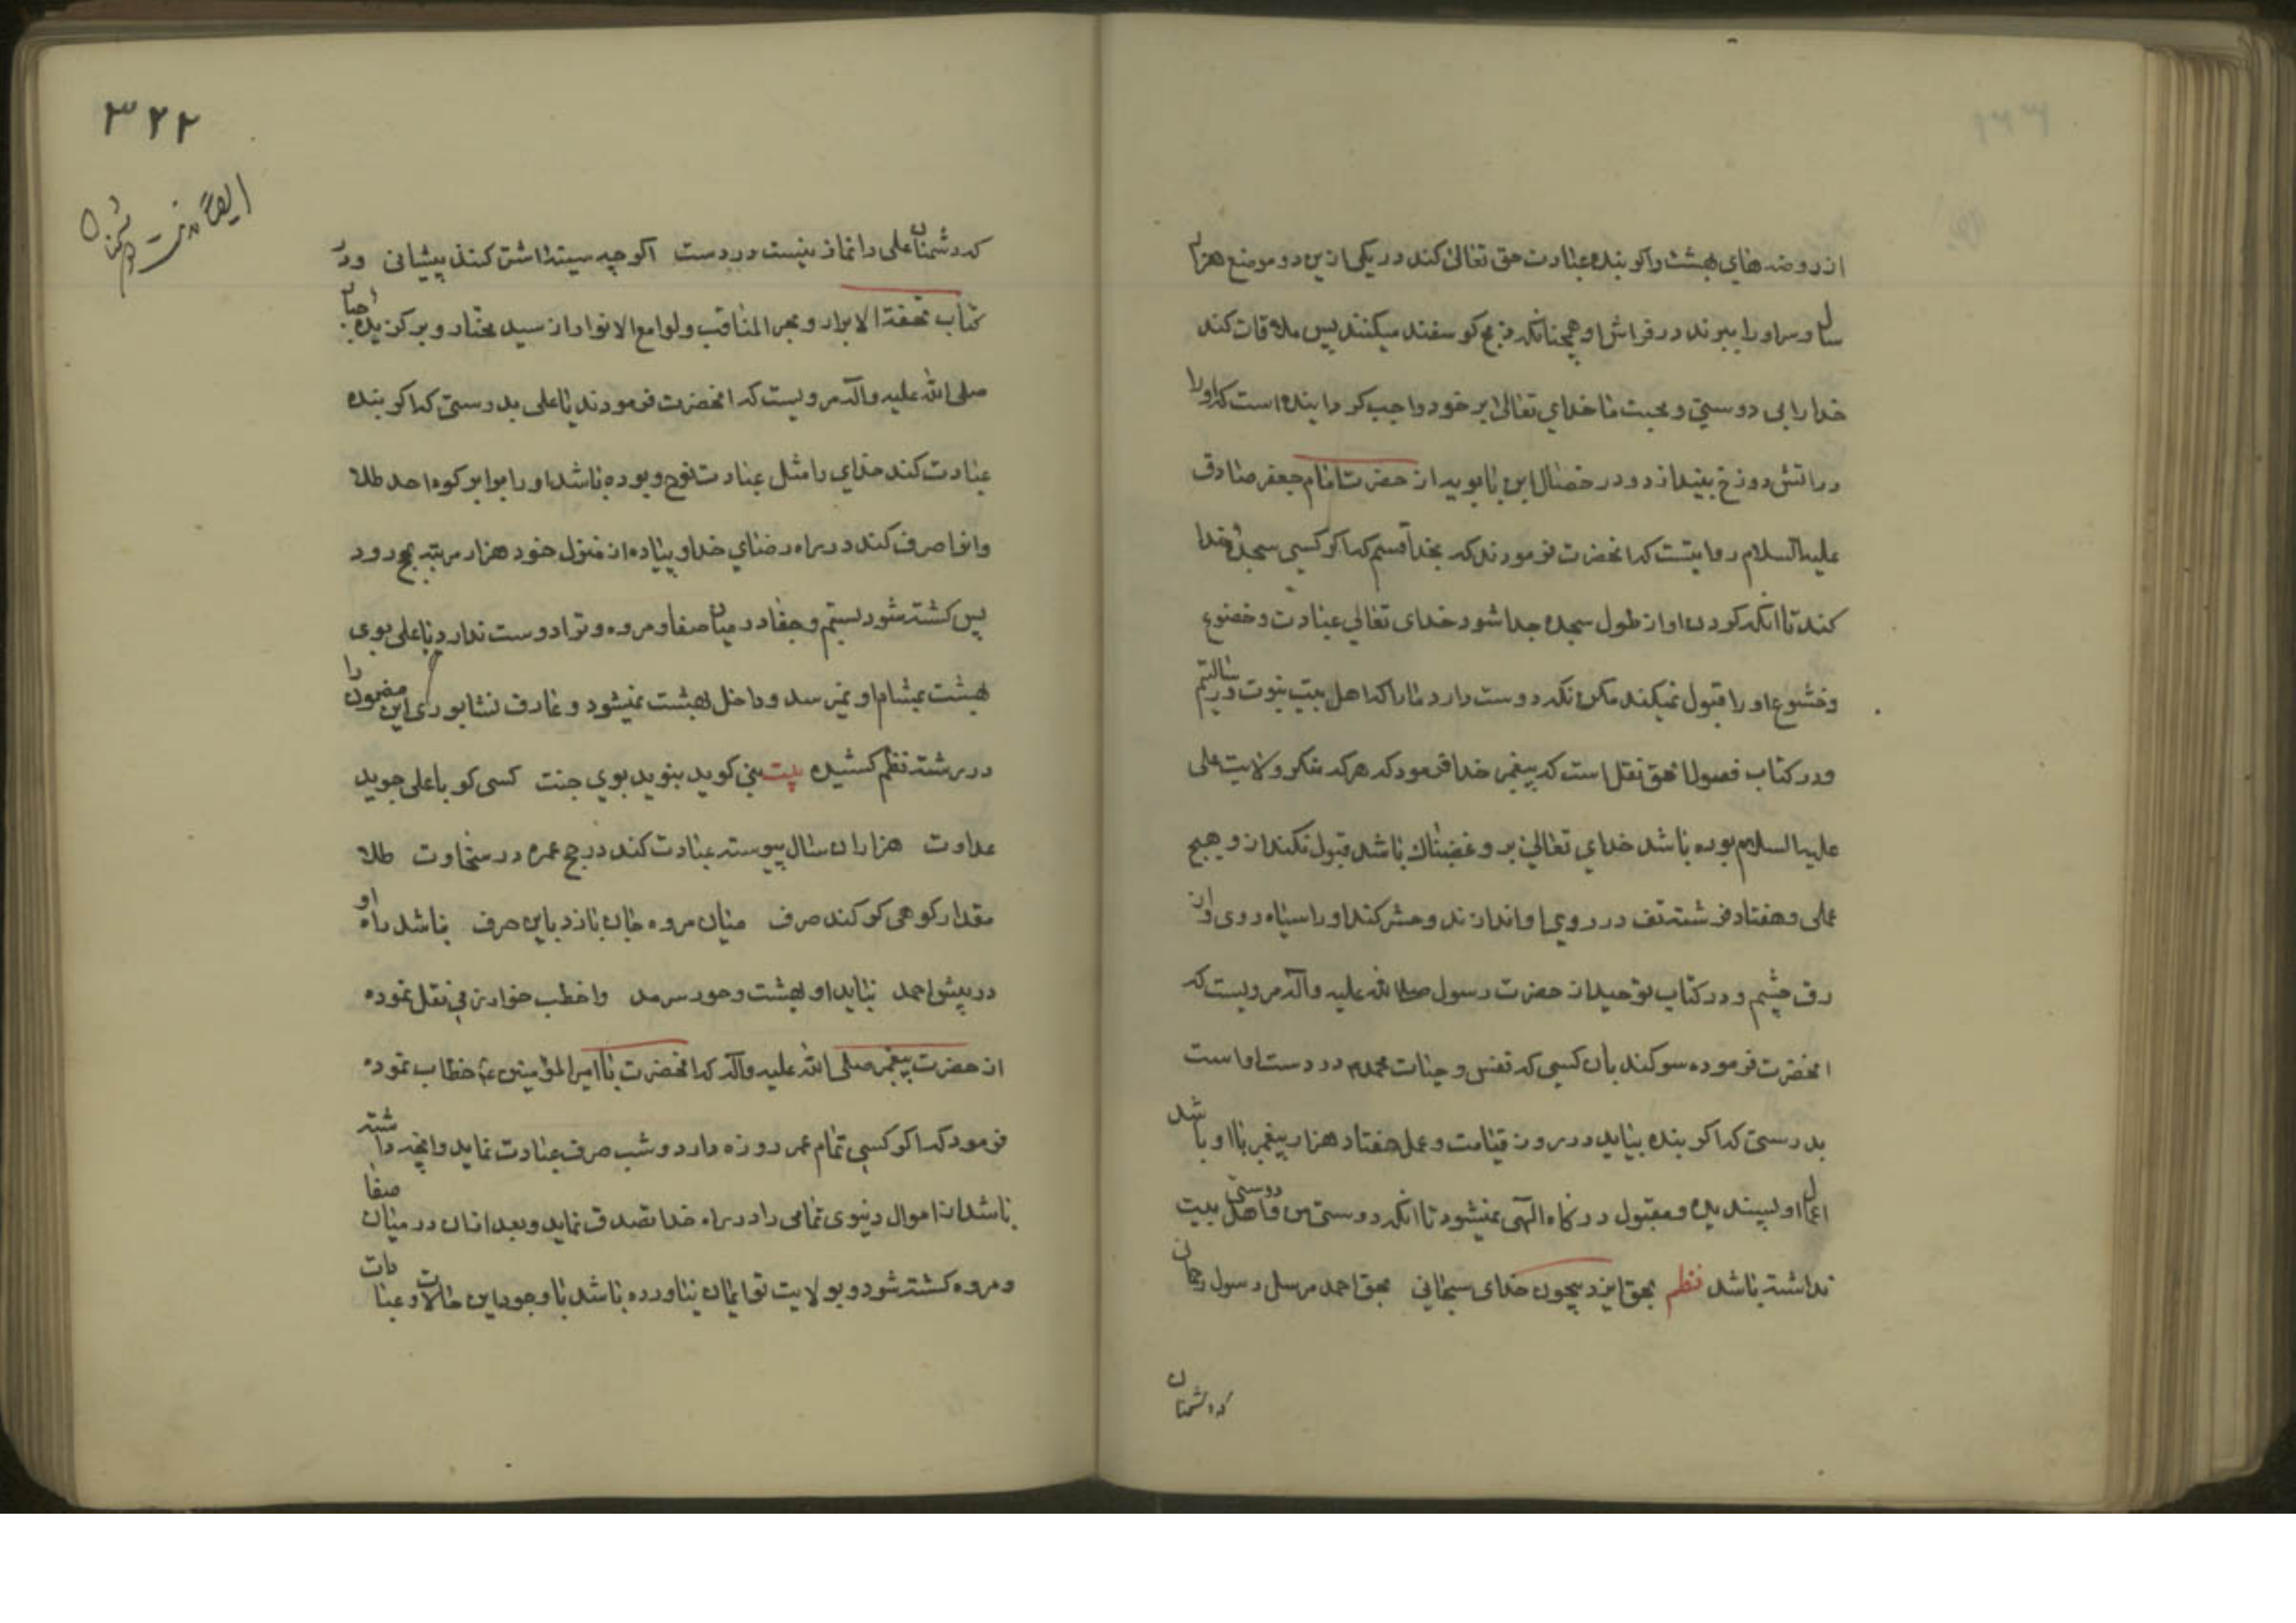 از روضه های بهشت واکر بنده عبادت حق تعالی کند در یکی ازین دو موضع هزار
سال و سر او را ببرند در فراش او همچنانکه ذبح کوسفند میکنند پس ملاقات کند
خدا را بی دوستی و محبت ما خدای تعالی بر خود واجب کردانیده است که او را
در اتش دوزخ بیندازد و در خصال ابن بابویه از حضرت امام جعفر صادق
علیه السلام روایتست که انحضرت فرمودند که بخدا قسم که اکر کسی سجده خدا
کند تا انکه کردن او از طول سجده جدا شود خدای تعالی عبادت و خضوع
و خشوع او را قبول نمیکند مکر انکه دوست دارد ما را که اهل بیت نبوت و رسالتیم
و در کتاب فصول الحق نقل است که پیغمبر خدا فرمود که هرکه منکر ولایت علی
علیه السلام بوده باشد خدای تعالی بر و غضبناک باشد قبول نکند از و هیچ
عملی و هفتاد فرشته تف در روی او اندازند و حشر کند او را سیاه روی و از
رق چشم و در کتاب توحید از حضرت رسول صلی الله علیه و آله مرویست که
انحضرت فرموده سوکند بان کسی که نفس و حیات محمدم در دست او است
بدرستی که اکر بنده بیاید در روز قیامت و عمل هفتاد هزار پیغمبر با او باشد
اعمال او پسندیده و مقبول درکاه الهی نمیشود تا انکه دوستی من و دوستی اهل بیت
نداشته باشد نظم بحق ایزد بیچون خدای سبحانی بحق احمد مرسل رسول رحمان
که دشمنان
۳۲۲
ایضا در مذمت دشمنان
که دشمنان علی را نماز نیست درست اکر چه سینه اشتر کنند پیشانی و در
کتاب تحفة الابرار و بحر المناقب و لوامع الانوار از سید مختار و برکزیده جبار
صلی الله علیه و آله مرویست که انحضرت فرمودند یا علی بدرستی که اکر بنده
عبادت کند خدای را مثل عبادت نوح و بوده باشد او را برابر کوه احد طلا
و انرا صرف کند در راه رضای خدا و پیاده از منزل خود هزار مرتبه بحج رود
پس کشته شود بستم و جفا در میان صفا و مروه و ترا دوست ندارد یا علی بوی
بهشت بمشام او نمیرسد و داخل بهشت نمیشود و عارف نشابوری این مضمون را
در رشته نظم کشیده بیت نبی کوید نبوید بوی جنت کسی کو با علی جوید
عداوت هزاران سال پیوسته عبادت کند در حج عمره در سخاوت طلا
مقدار کوهی کر کند صرف میان مروه جان بازد باین حرف نباشد راه او
در پیش احمد نیابد او بهشت و حور سرمد و اخطب خوارزمی نقل نموده
از حضرت پیغمبر صلی الله علیه و آله که انحضرت با امیر المؤمنین ع خطاب نموده
فرمود که اکر کسی تمام عمر روزه دارد و شب صرف عبادت نماید و انچه داشته
باشد از اموال دنیوی تمامی را در راه خدا تصدق نماید و بعد ازان در میان صفا
و مروه کشته شود و بولایت تو ایمان نیاورده باشد با وجود این حالات و عبادات